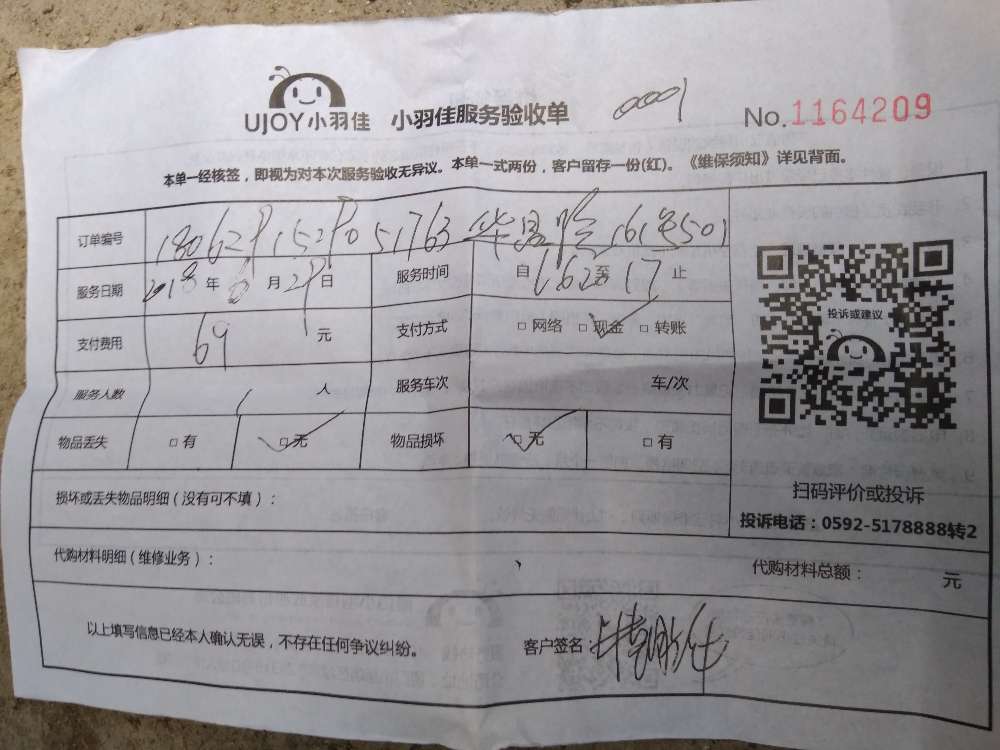 UJOY小羽佳 小羽佳服务验收单 0001 No.1164209
本单一经核签，即视为对本次服务验收无异议。本单一式两份，客户留存一份(红)。《维保须知》详见背面。
订单编号 51763 161号501
服务日期 2018 年 6 月 29 日 服务时间 自 至 17 止
支付费用 69 元 支付方式 □ 网络 □ 现金 □ 转账
服务人数 1 人 服务车次 车/次
物品丢失 □ 有 □ 无 物品损坏 □ 无 □ 有
投诉或建议
扫码评价或投诉
投诉电话：0592-5178888转2
损坏或丢失物品明细（没有可不填）：
代购材料明细（维修业务）： 代购材料总额： 元
以上填写信息已经本人确认无误，不存在任何争议纠纷。 客户签名：